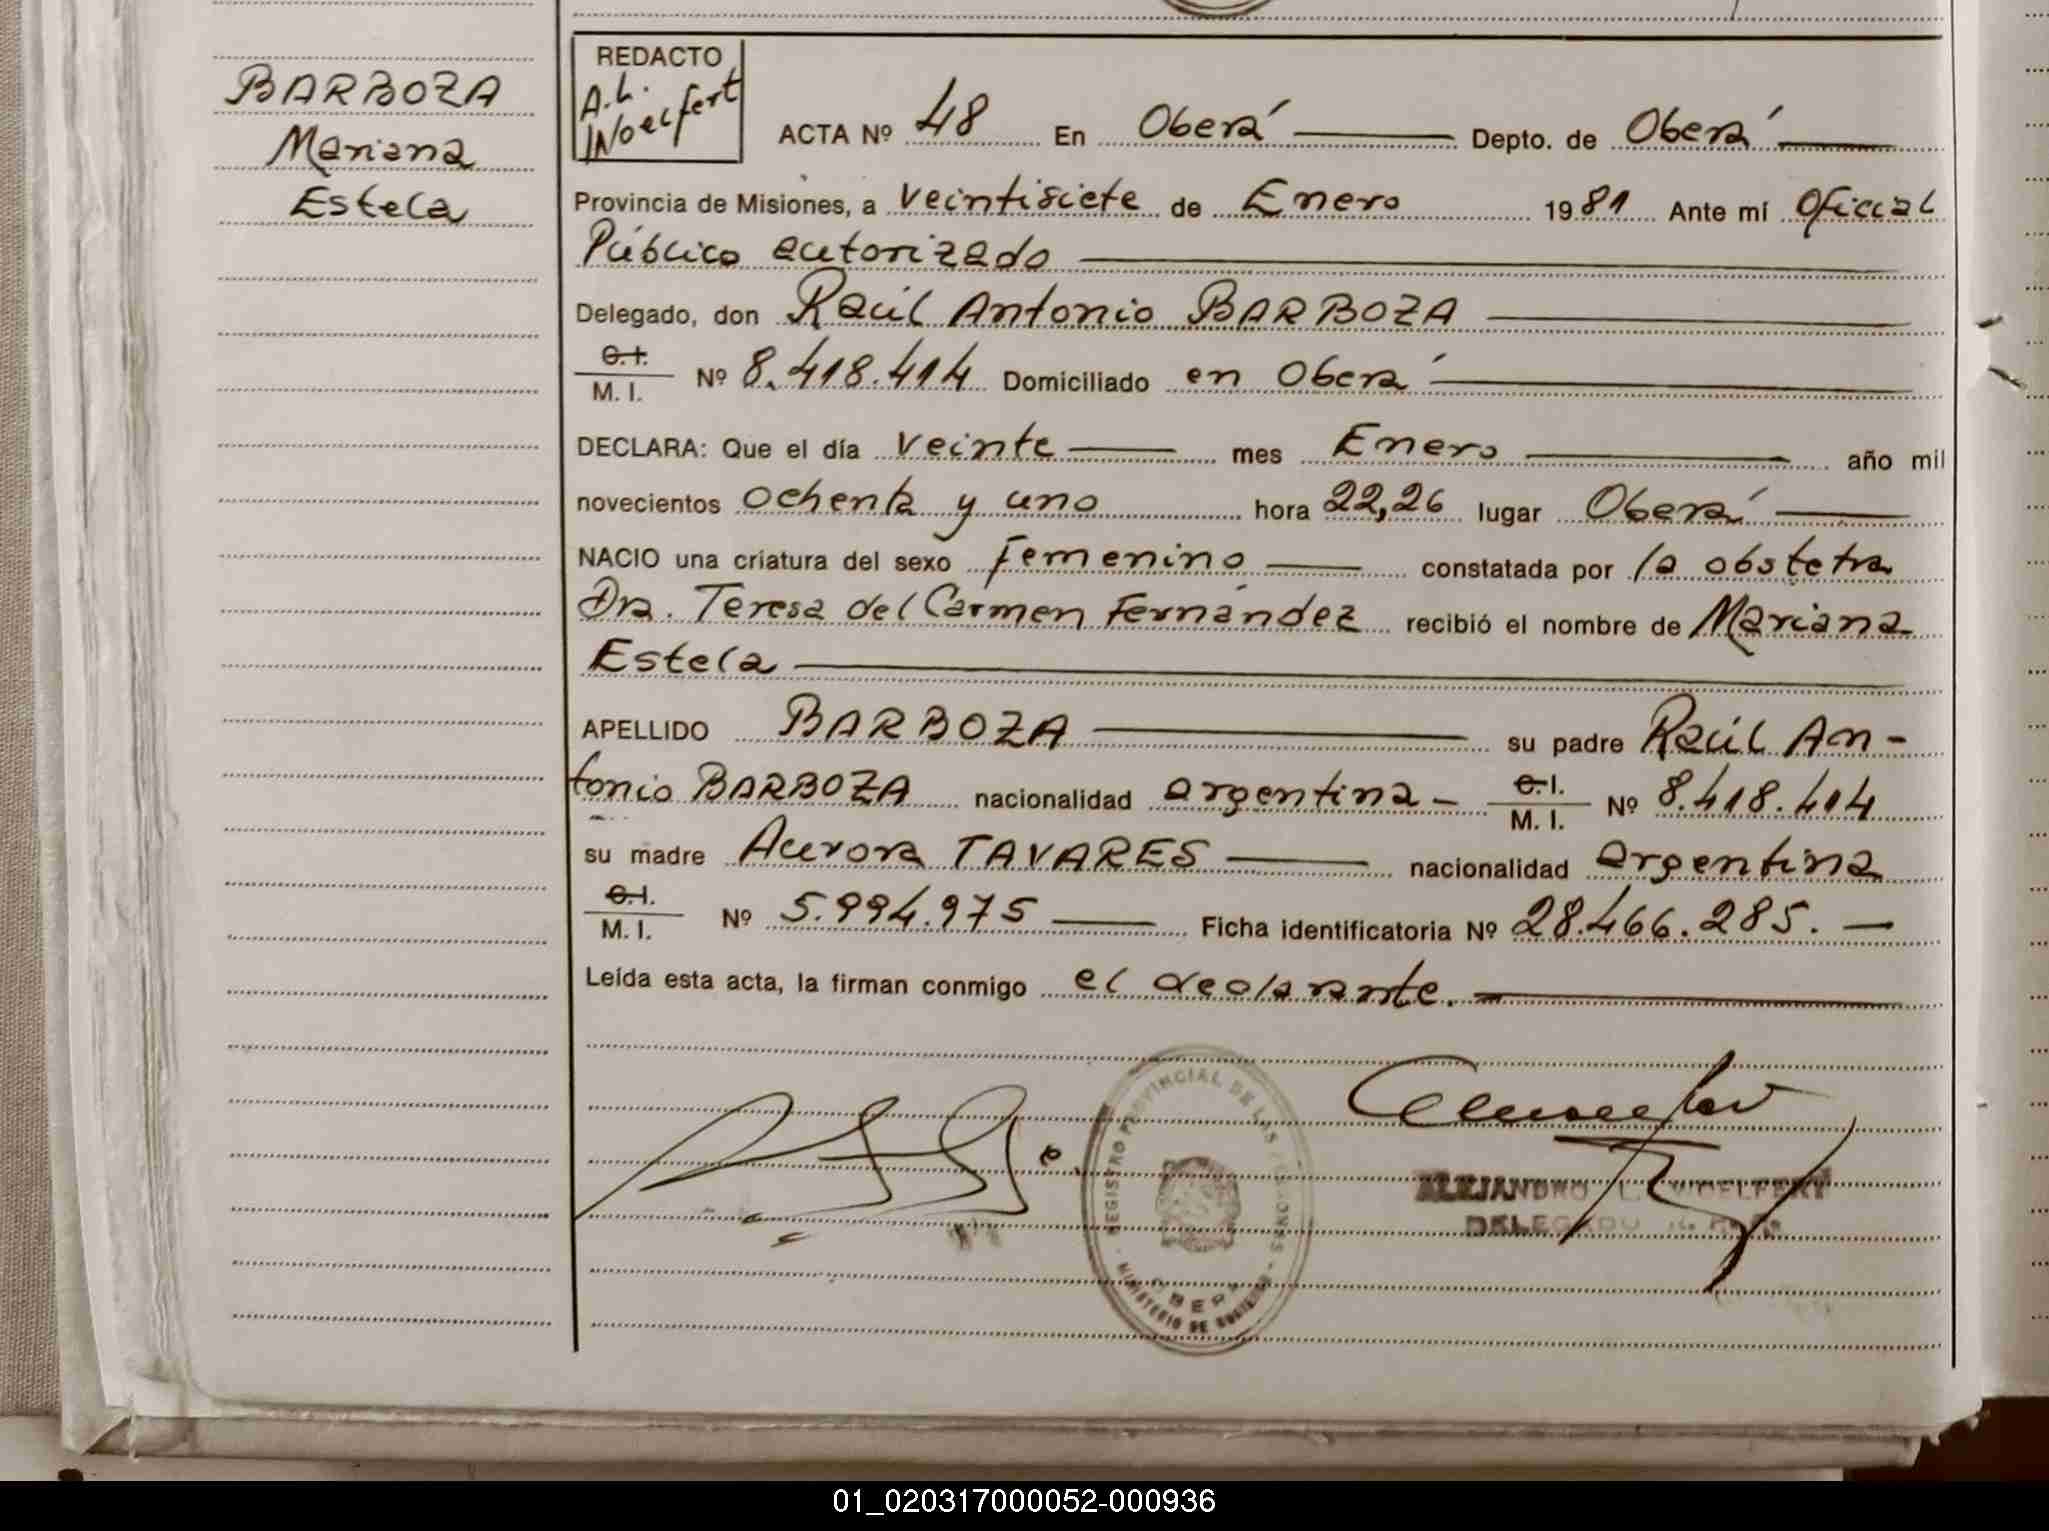 BARBOZA
Mariana
Estela
REDACTO
A.L.
Woelfert
ACTA Nº 48 En Oberá Depto. de Oberá
Provincia de Misiones, a veintisiete de Enero 1981 Ante mí Oficial
Público autorizado
Delegado, don Raúl Antonio BARBOZA
C.I.
M. I. Nº 8.418.414 Domiciliado en Oberá
DECLARA: Que el día veinte mes Enero año mil
novecientos ochenta y uno hora 22,26 lugar Oberá
NACIO una criatura del sexo femenino constatada por la obstetra
Dra. Teresa del Carmen Fernández recibió el nombre de Mariana
Estela
APELLIDO BARBOZA su padre Raúl An-
tonio BARBOZA nacionalidad argentina - C.I. M. I. Nº 8.418.414
su madre Aurora TAVARES nacionalidad argentina
C.I.
M. I. Nº 5.994.975 Ficha identificatoria Nº 28.466.285. -
Leída esta acta, la firman conmigo el declarante.
REGISTRO PROVINCIAL DE LAS PERSONAS
OBERA
MINISTERIO DE GOBIERNO
ALEJANDRO L. WOELFERT
DELEGADO R. P. P.
01_020317000052-000936